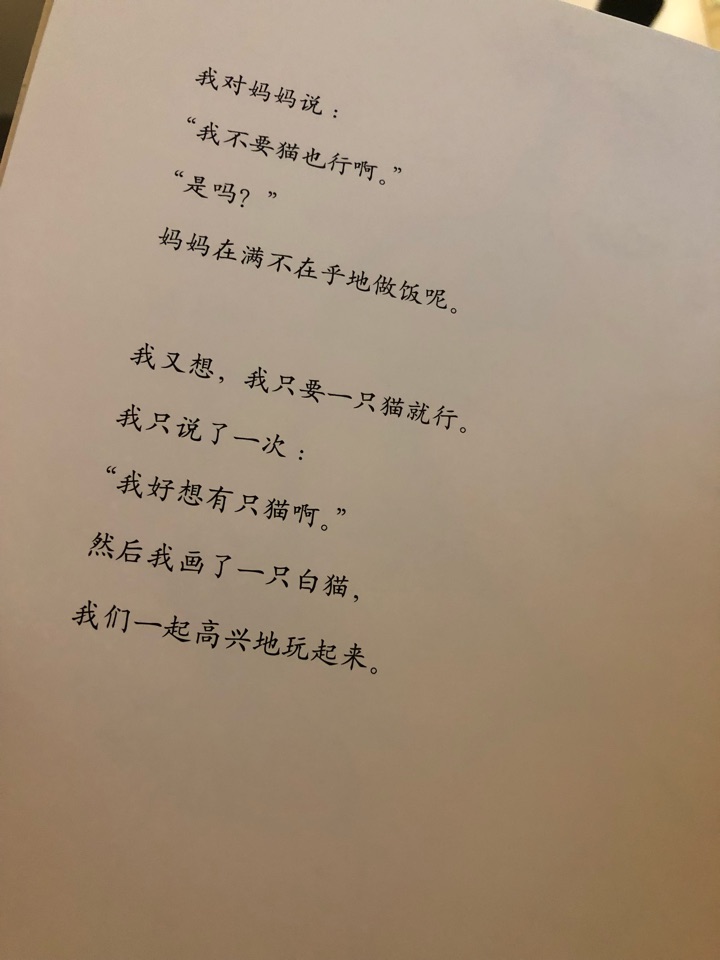 我对妈妈说：
“我不要猫也行啊。”
“是吗？”
妈妈在满不在乎地做饭呢。
我又想，我只要一只猫就行。
我只说了一次：
“我好想有只猫啊。”
然后我画了一只白猫，
我们一起高兴地玩起来。